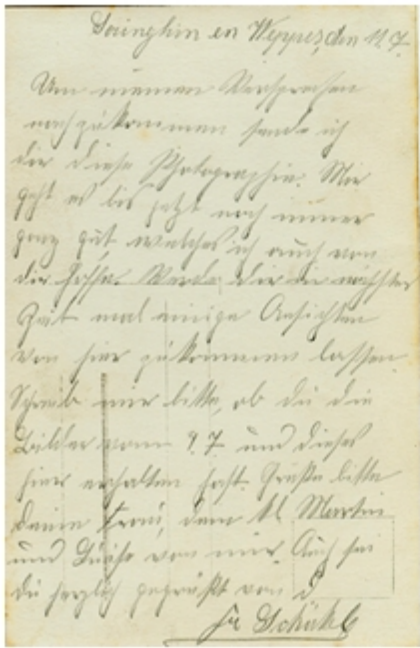 Sainghin en Weppes, den 12.7.
Um meinem Versprechen
nachzukommen sende ich
dir diese Photographie. Mir
geht es bis jetzt noch immer
ganz gut, welches ich auch von
dir hoffe. Werde dir in nächster
Zeit mal einige Ansichten
von hier zukommen lassen.
Schreib mir bitte, ob du die
Bilder vom 9.7 und dieses
hier erhalten hast. Grüße bitte
deine Frau, dem kl. Martin
und von mir. Auch sei
du herzlich gegrüßt von